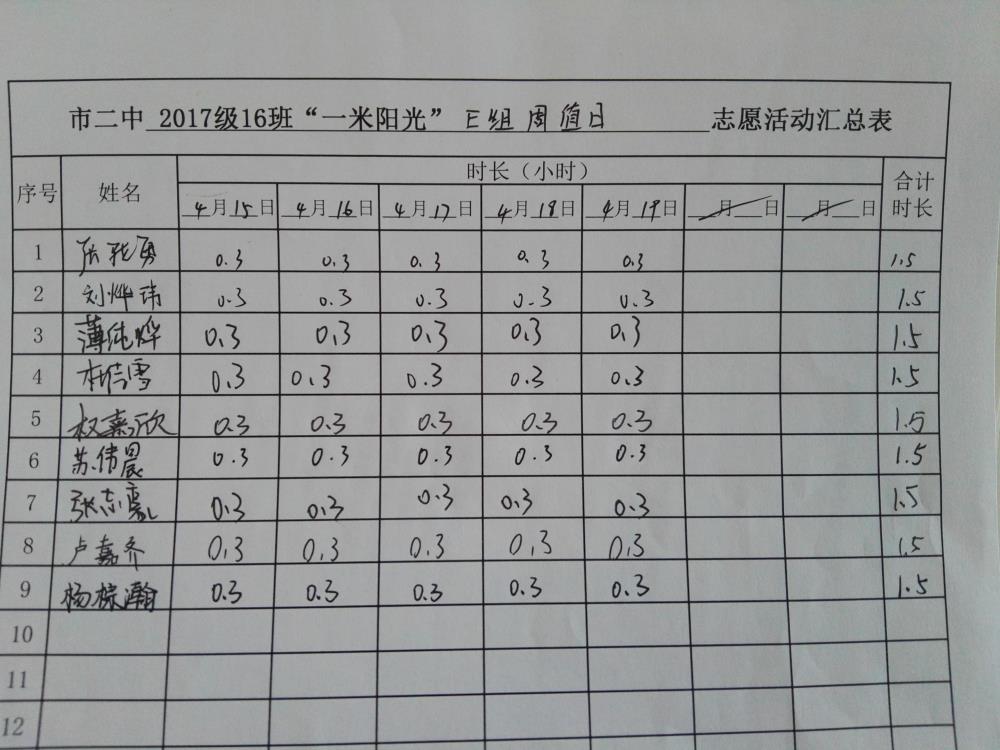 市二中 2017级16班“一米阳光” E组周值日 志愿活动汇总表
序号 姓名 时长（小时） 合计时长
4月15日 4月16日 4月17日 4月18日 4月19日 月 日 月 日
1 勇 0.3 0.3 0.3 0.3 0.3 1.5
2 刘烨玮 0.3 0.3 0.3 0.3 0.3 1.5
3 薄纯烨 0.3 0.3 0.3 0.3 0.3 1.5
4 杜倩雪 0.3 0.3 0.3 0.3 0.3 1.5
5 权嘉欣 0.3 0.3 0.3 0.3 0.3 1.5
6 苏伟晨 0.3 0.3 0.3 0.3 0.3 1.5
7 张志豪 0.3 0.3 0.3 0.3 0.3 1.5
8 卢嘉齐 0.3 0.3 0.3 0.3 0.3 1.5
9 杨棕瀚 0.3 0.3 0.3 0.3 0.3 1.5
10
11
12